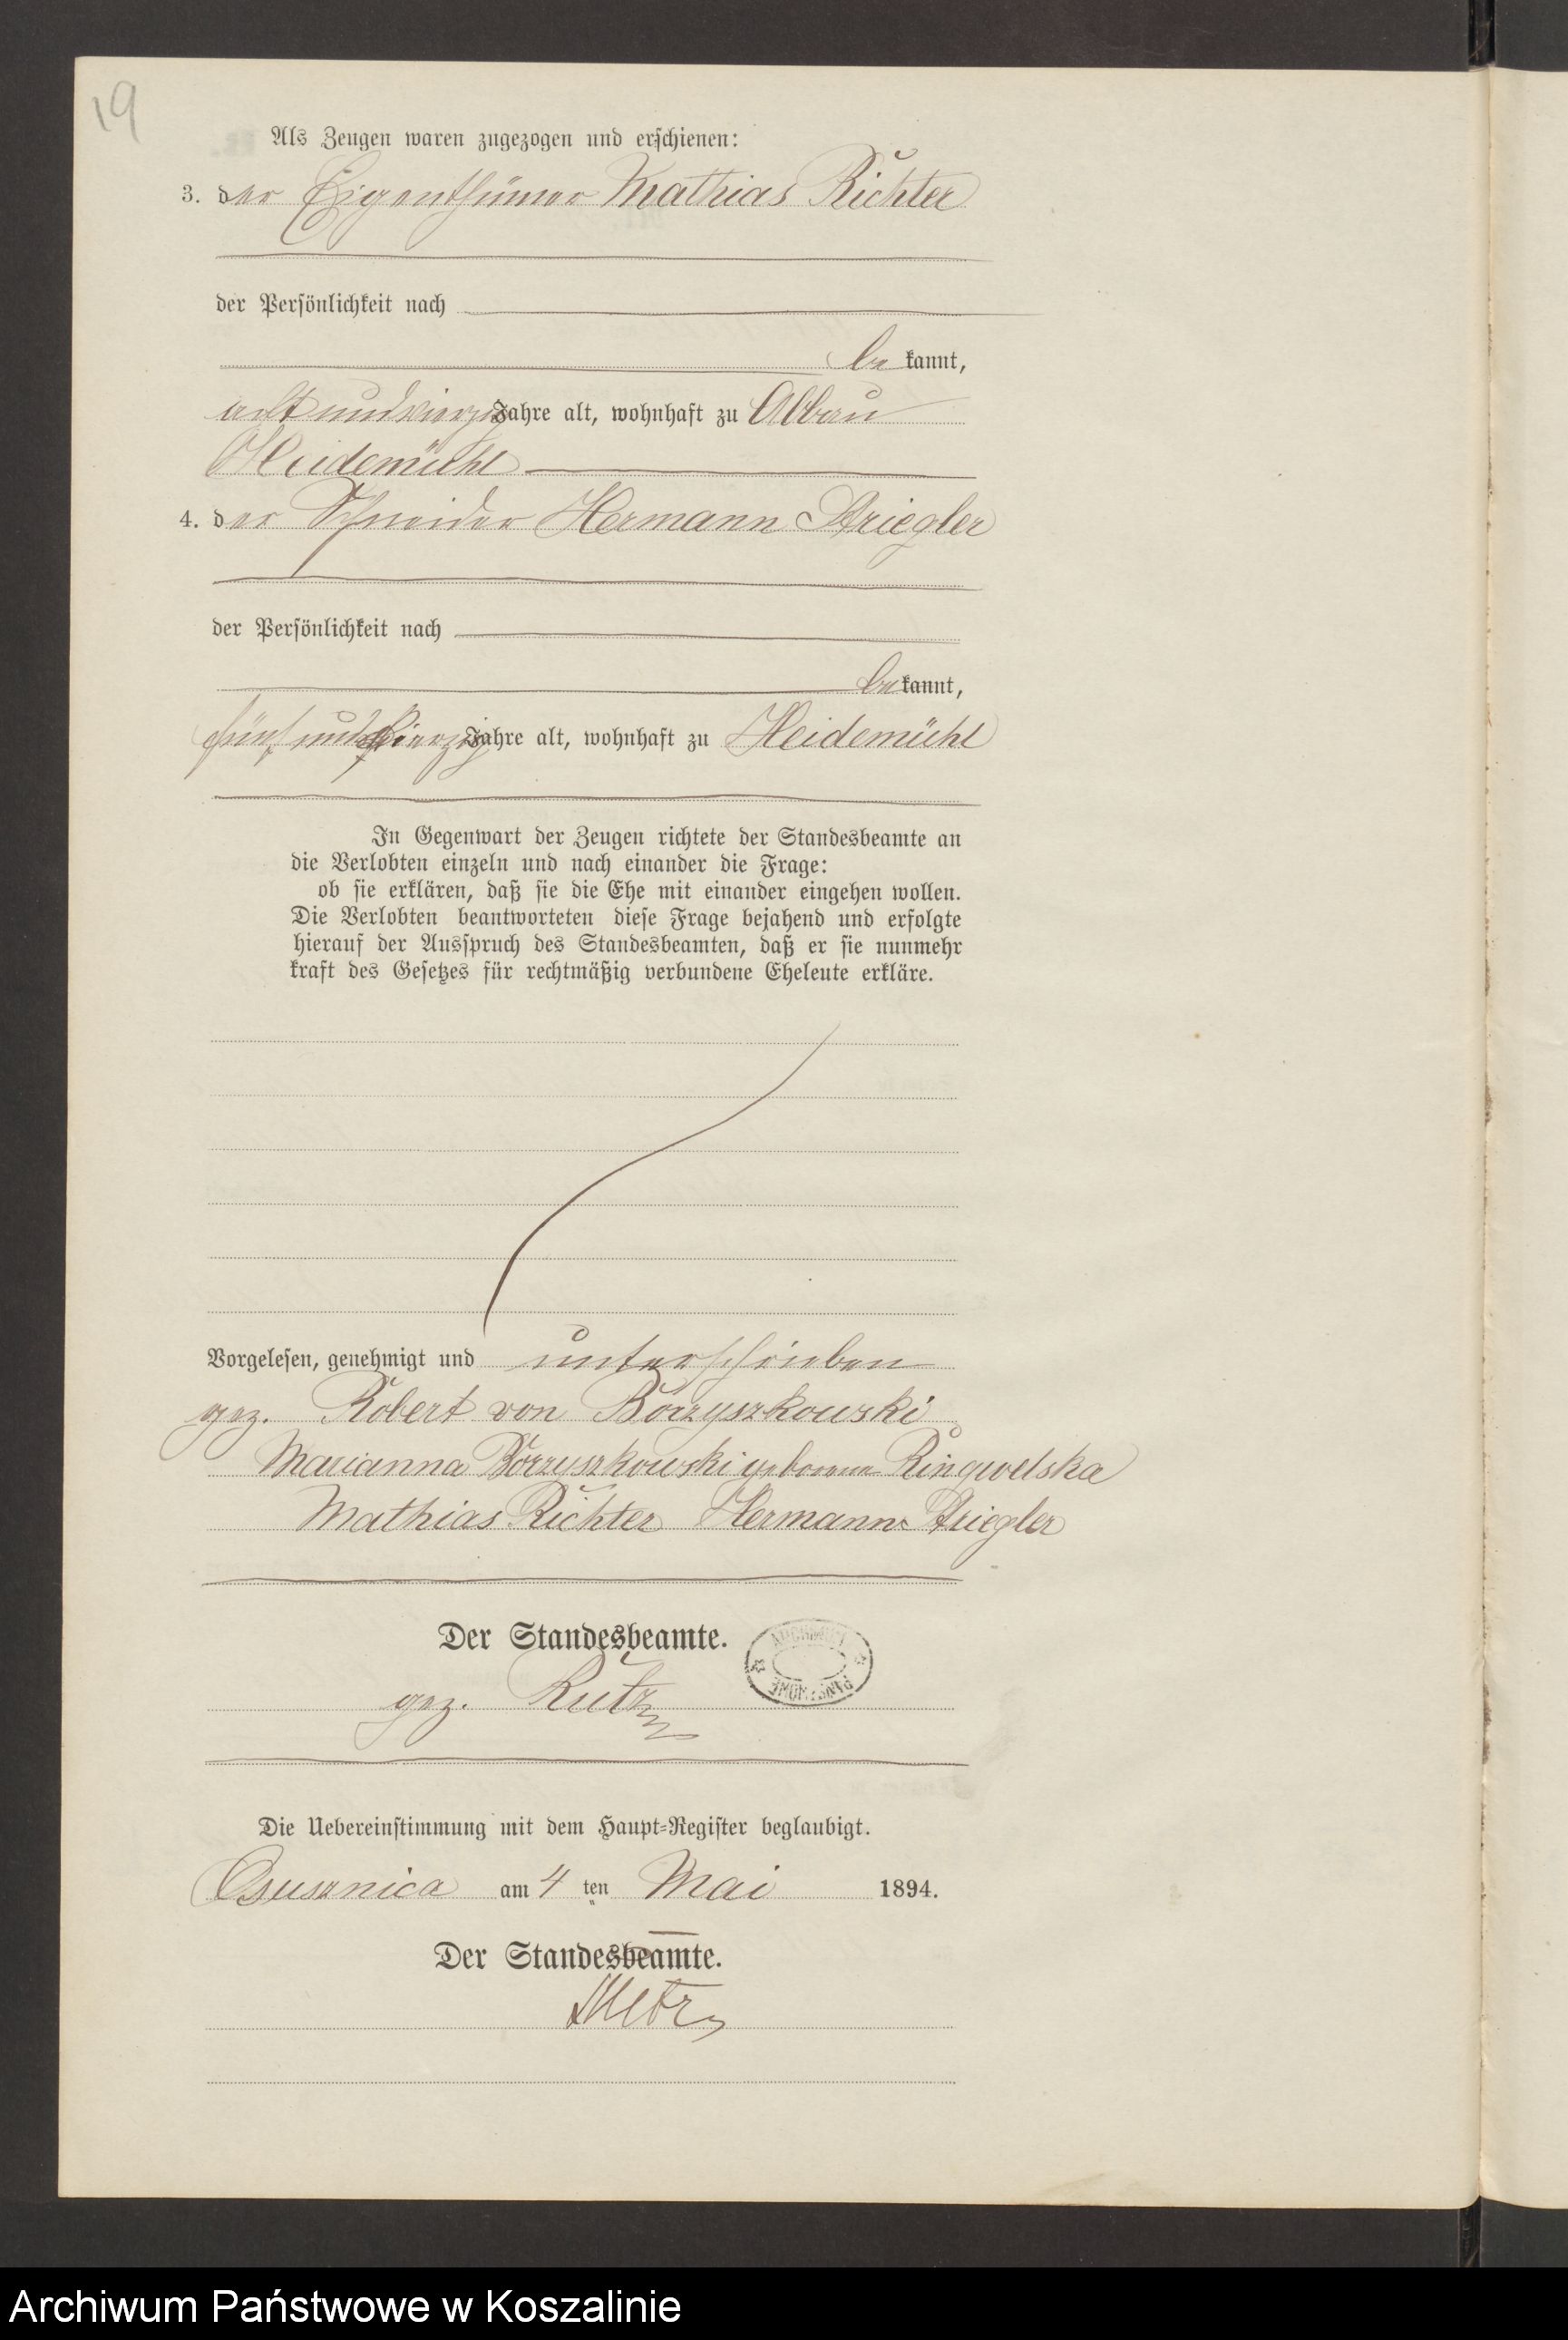 19
Als Zeugen waren zugezogen und erschienen:
3. der Eigenthümer Mathias Richter
der Persönlichkeit nach
bekannt,
acht und vierzig Jahre alt, wohnhaft zu Abbau
Heidemühl
4. der Schneider Hermann Striegler
der Persönlichkeit nach
bekannt,
fünf und vierzig Jahre alt, wohnhaft zu Heidemühl
In Gegenwart der Zeugen richtete der Standesbeamte an
die Verlobten einzeln und nach einander die Frage:
ob sie erklären, daß sie die Ehe mit einander eingehen wollen.
Die Verlobten beantworteten diese Frage bejahend und erfolgte
hierauf der Ausspruch des Standesbeamten, daß er sie nunmehr
kraft des Gesetzes für rechtmäßig verbundene Eheleute erkläre.
Vorgelesen, genehmigt und unterschrieben
gez. Robert von Borzyszkowski
Marianna Borzyszkowski geborene Ringwelska
Mathias Richter Hermann Striegler
Der Standesbeamte.
gez. Rutz
Die Uebereinstimmung mit dem Haupt-Register beglaubigt.
Osusznica am 4 ten Mai 1894.
Der Standesbeamte.
Archiwum Państwowe w Koszalinie